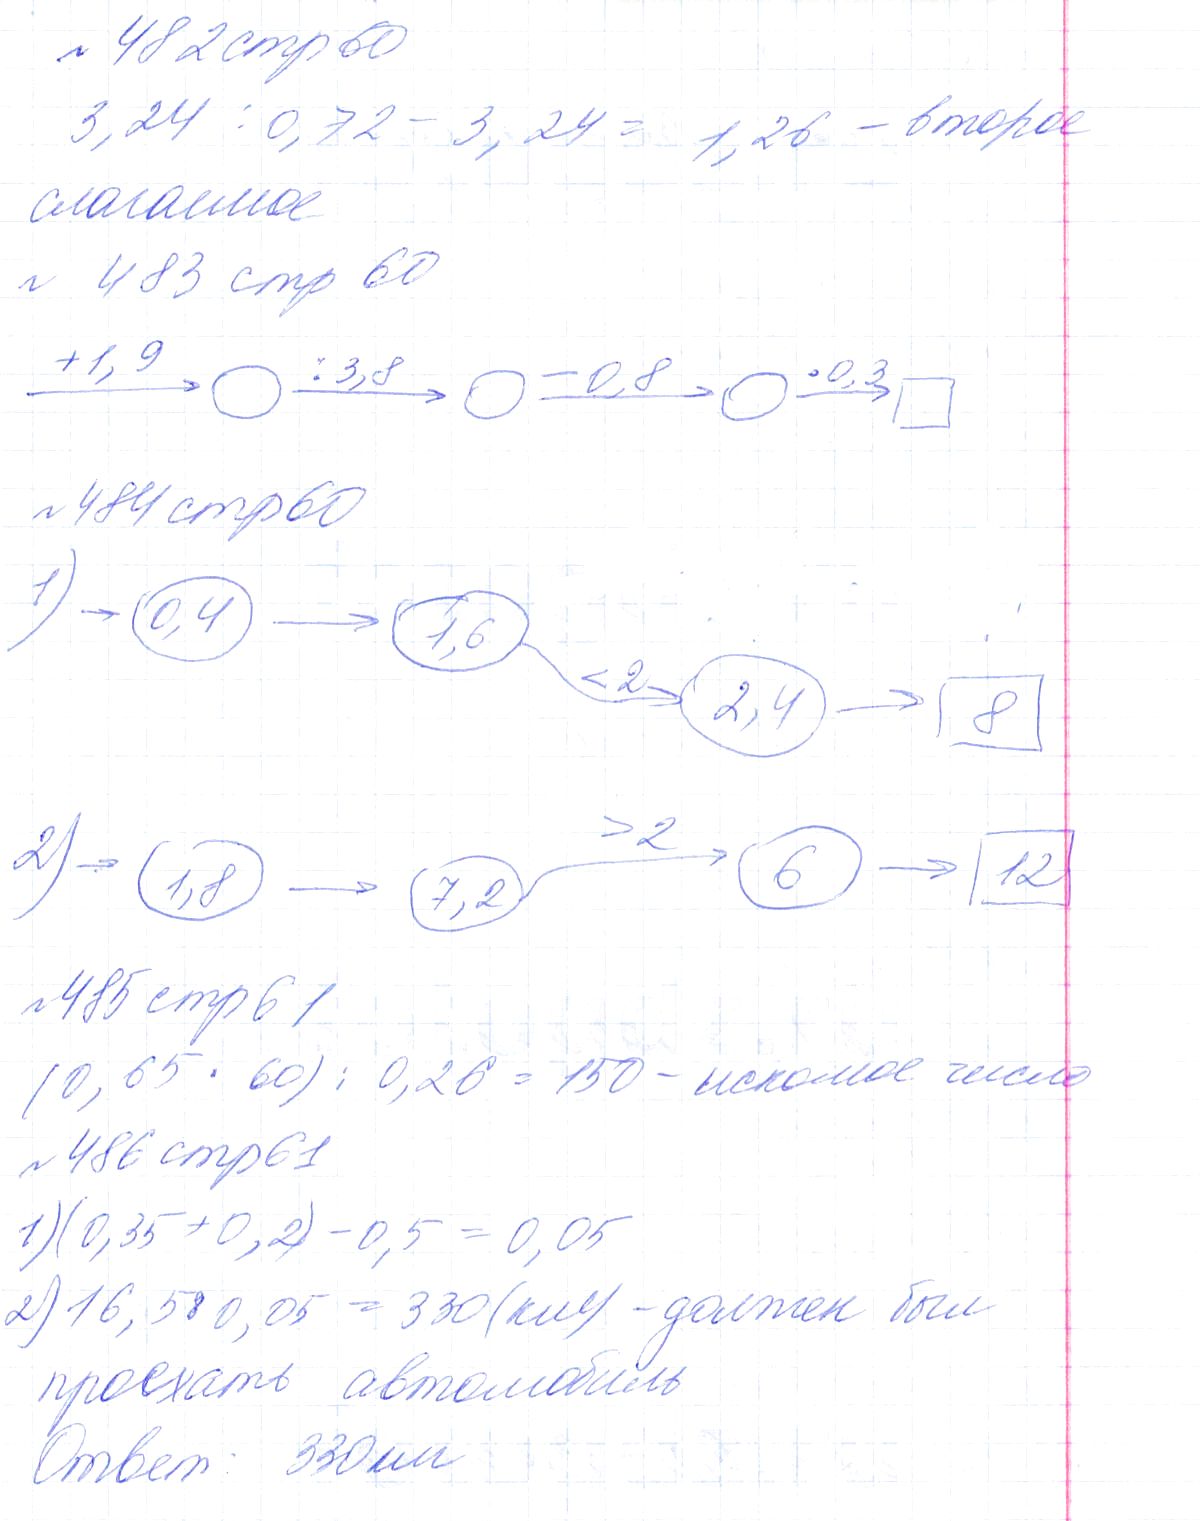 ~ 482 стр 60
3,24 : 0,72 - 3,24 = 1,26 - второе
слагаемое
~ 483 стр 60
+1,9 :3,8 -0,8 ·0,3
~ 484 стр 60
1) → 0,4 → 1,6 <2 → 2,4 → 8
2) → 1,8 → 7,2 >2 → 6 → 12
~ 485 стр 61
(0,65 · 60) : 0,26 = 150 - искомое число
~ 486 стр 61
1) (0,35 + 0,2) - 0,5 = 0,05
2) 16,5 : 0,05 = 330 (км) - должен был
проехать автомобиль
Ответ: 330 км